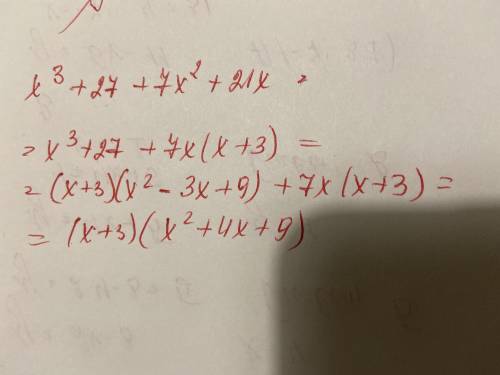 x³ + 27 + 7x² + 21x =
= x³ + 27 + 7x(x + 3) =
= (x+3)(x² - 3x + 9) + 7x(x+3) =
= (x+3)(x² + 4x + 9)